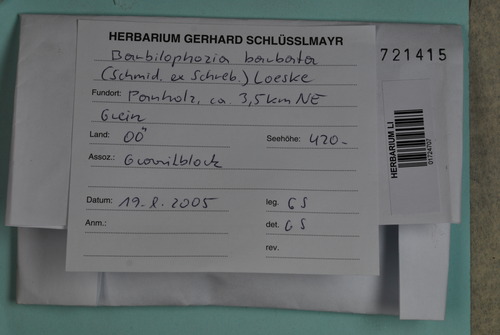 HERBARIUM GERHARD SCHLÜSSLMAYR
Barbilophozia barbata
(Schmid. ex Schreb.) Loeske
Fundort: Panholz, ca. 3,5km NE
Grein
Land: OÖ Seehöhe: 420.-
Assoz.: Granitblock
Datum: 2005 leg. GS
Anm.: det. GS
rev.
721415
HERBARIUM LI
01724707